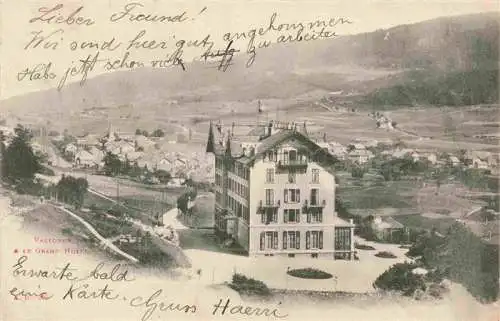 Lieber Freund!
Wir sind hier gut angekommen
Hab jetzt schon viel zu arbeiten
& LE GRAND HOTEL
Erwarte bald
eine Karte. Gruss Haerri